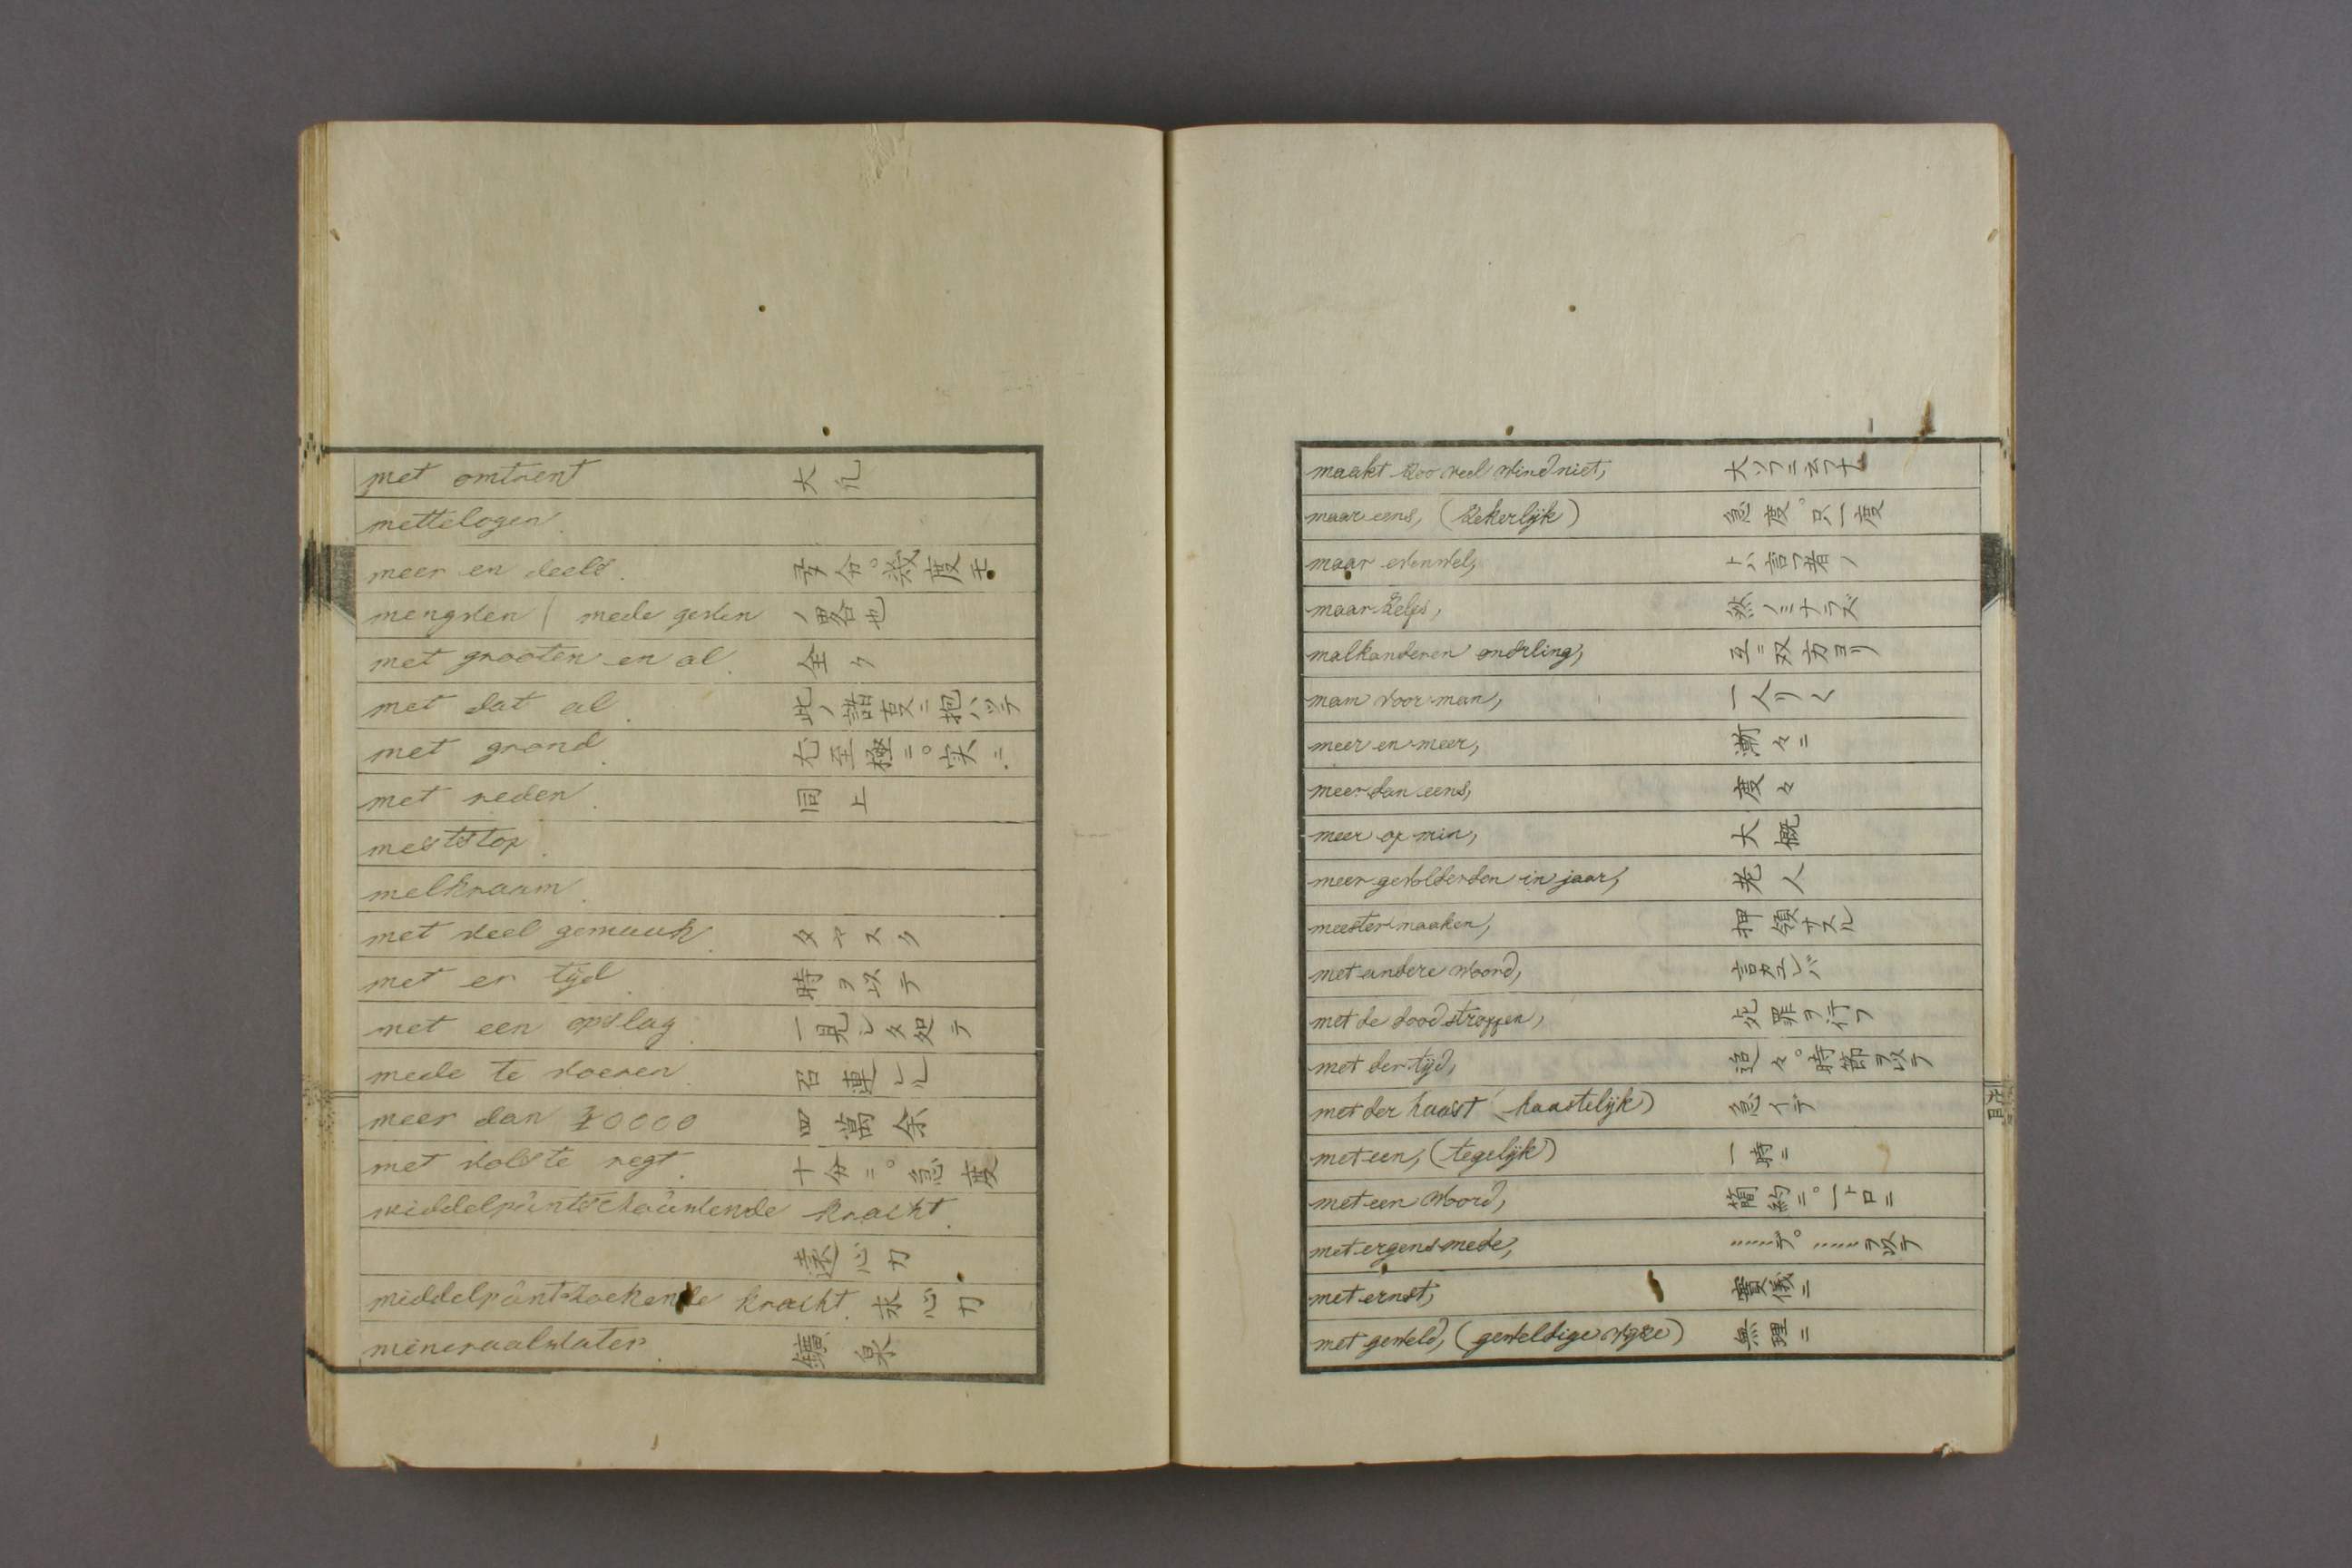 met omtrent 大凡
mettelogen.
meer en deels. 多分。幾度モ
mengden mede geden ノ畧各也
met grooten en al. 全ク
met dat al. 此ノ諸㕝ニ抱ハラデ
met grond. 尤至極ニ。実ニ
met reden. 同上
meststop.
melkraam.
met veel gemaak. タヤスク
met er tijd. 時ヲ以テ
met een opslag. 一見シタ処テ
mede te voeren. 召連ル
meer dan 40000 四萬余
met volste regt. 十分ニ。急度
middelpûntschoûwende kracht.
遠心力
middelpûntzoekende kracht. 求心力
mineraalwater. 鑛泉
maakt zoo veel wind niet, 大ソフニ云フナ
maar eens, (zekerlijk) 急度。只一度
maar evenwel, ト言フ者ノ
maar zelfs, 然ノミナラズ
malkanderen onderling, 互ニ双方ヨリ
mam voor man, 一人リ〱
meer en meer, 漸々ニ
meer dan eens, 度々
meer op min, 大概
meer gevolderden in jaar, 老人
meester maaken, 押領サスル
met andere woord, 言カエレバ
met de dood stroffen, 死罪ヲ行フ
met der tijd, 追々。時節ヲ以テ
met der haast (haastelijk) 急イデ
met een, (tegelijk) 一時ニ
met een woord, 簡約ニ。一ト口ニ
met ergens mede, ……デ。……ヲ以テ
met ernst, 實儀ニ
met geweld, (geweldige wijze) 無理ニ